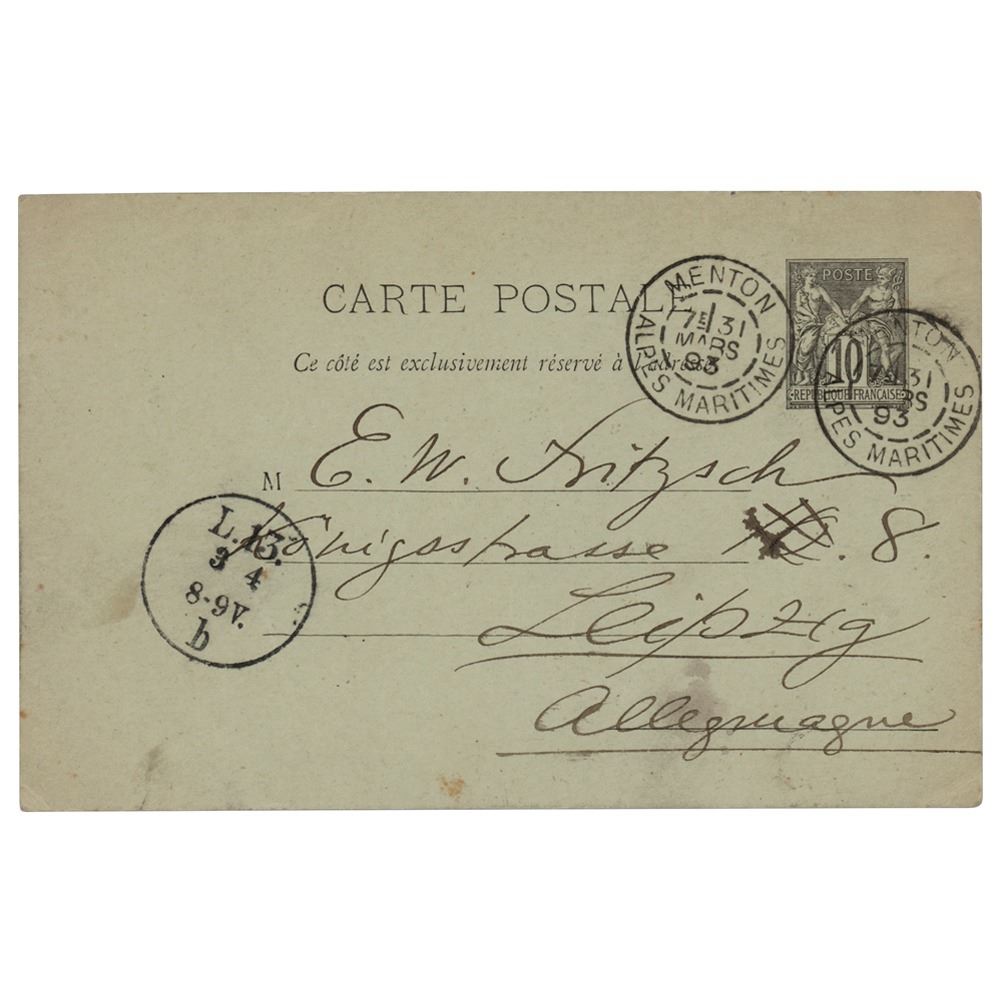 CARTE POSTALE
Ce côté est exclusivement réservé à l'adresse
MENTON
7E 31
MARS
93
ALPES MARITIMES
POSTE
10
REPUBLIQUE FRANÇAISE
MENTON
31
MARS
93
ALPES MARITIMES
M E. W. Fritzsch
Königsstrasse 8.
Leipzig
Allegmagne
L.13.
3 4
8-9V.
b